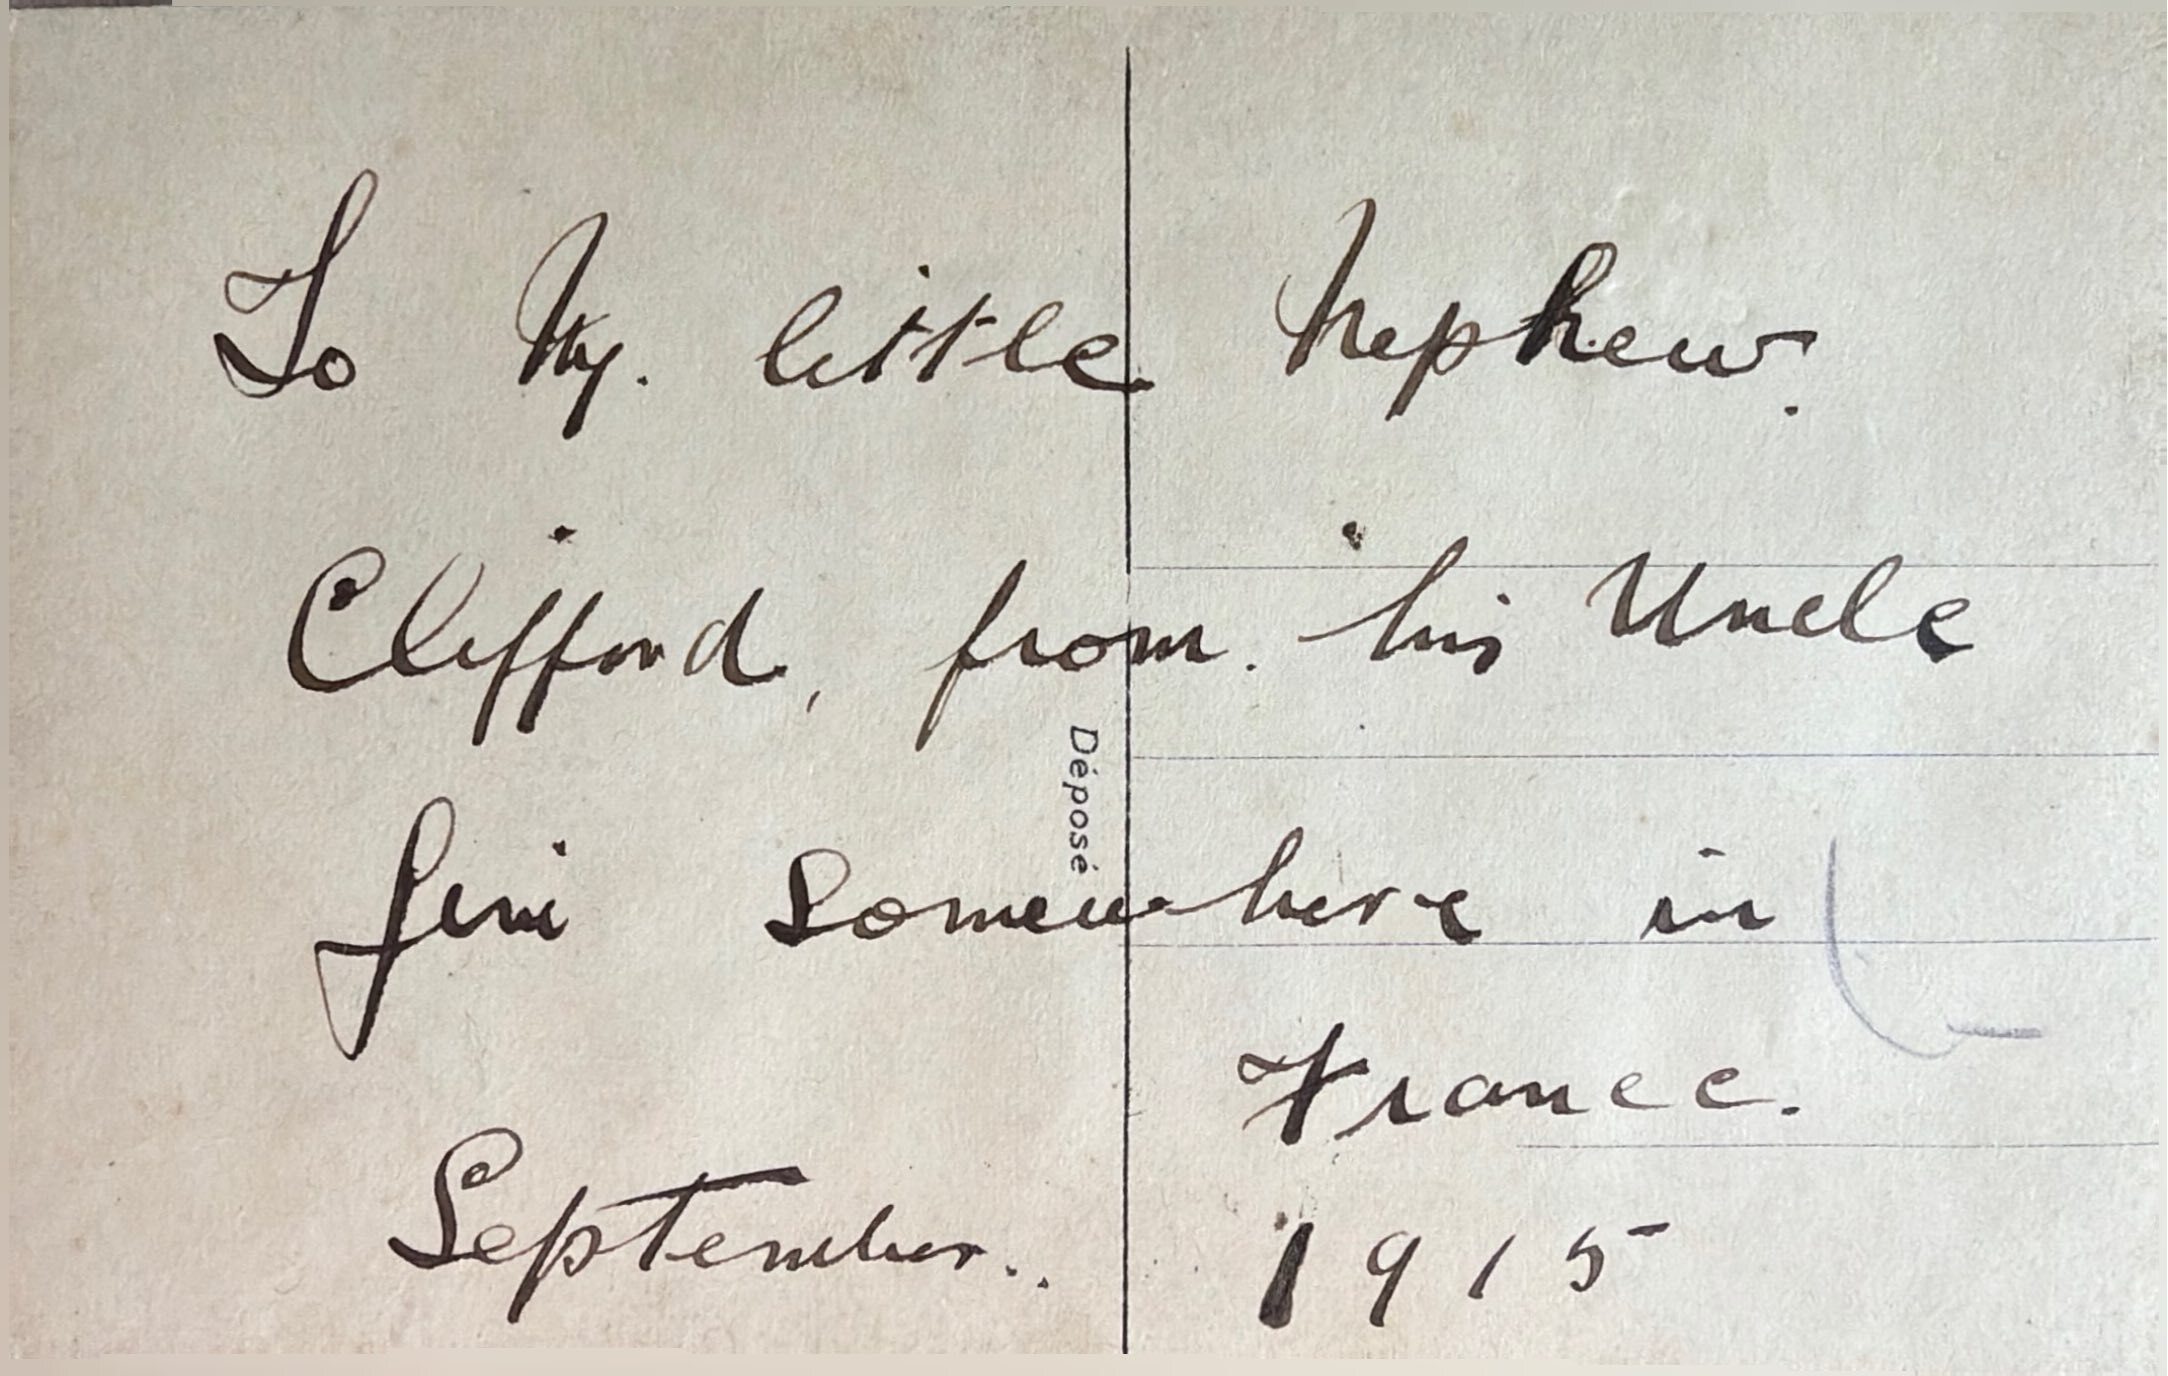 To My. little Nephew.
Clifford, from. his Uncle
Jim Somewhere in
France.
September.. 1915
Déposé